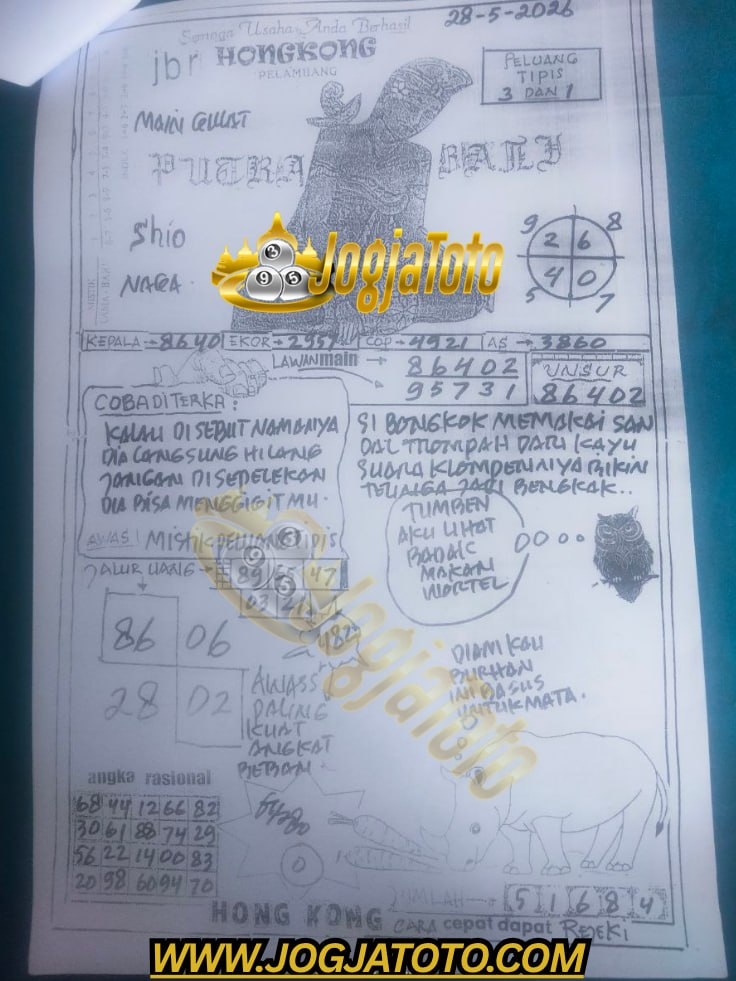 28-5-2026
Semoga Usaha Anda Berhasil
jbr HONGKONG
PELAMUANG
PELUANG
TIPIS
3 DAN 1
MAIN CEWAT
PUTRA BALI
Shio
NAGA
9 8
2 6
4 0
5 7
JogjaToto
3
9 5
KEPALA → 8640 EKOR → 2957 COP → 4921 AS → 3860
LAWAN main → 86402
95731
UNSUR
86402
COBA DITERKA :
KALAU DI SEBUT NAMANYA
DIA LANGSUNG HILANG
JANGAN DI SEPELEKAN
DIA BISA MENGGIGIT MU.
SI BONGKOK MEMAKAI SAN
DAL TROMPAH DARI KAYU
SUARA KLOMPENNIYA BIKIN
TELINGA JADI BENGKAK..
AWAS! MISTIK PELUANG TIPIS
TUMBEN
AKU LIHAT
BADAK
MAKAN
WORTEL
JALUR UANG →
89 55 47
63 21
482
86 06
28 02
AWASS
PALING
KUAT
ANGKAT
BEBAN
DIAM KAU
BURHAN
INI BAGUS
UNTUK MATA.
JogjaToto
angka rasional
68 44 12 66 82
30 61 88 74 29
56 22 14 00 83
20 98 60 94 70
0
JUMLAH → 5 1 6 8 4
HONG KONG CARA cepat dapat REJEKI
WWW.JOGJATOTO.COM